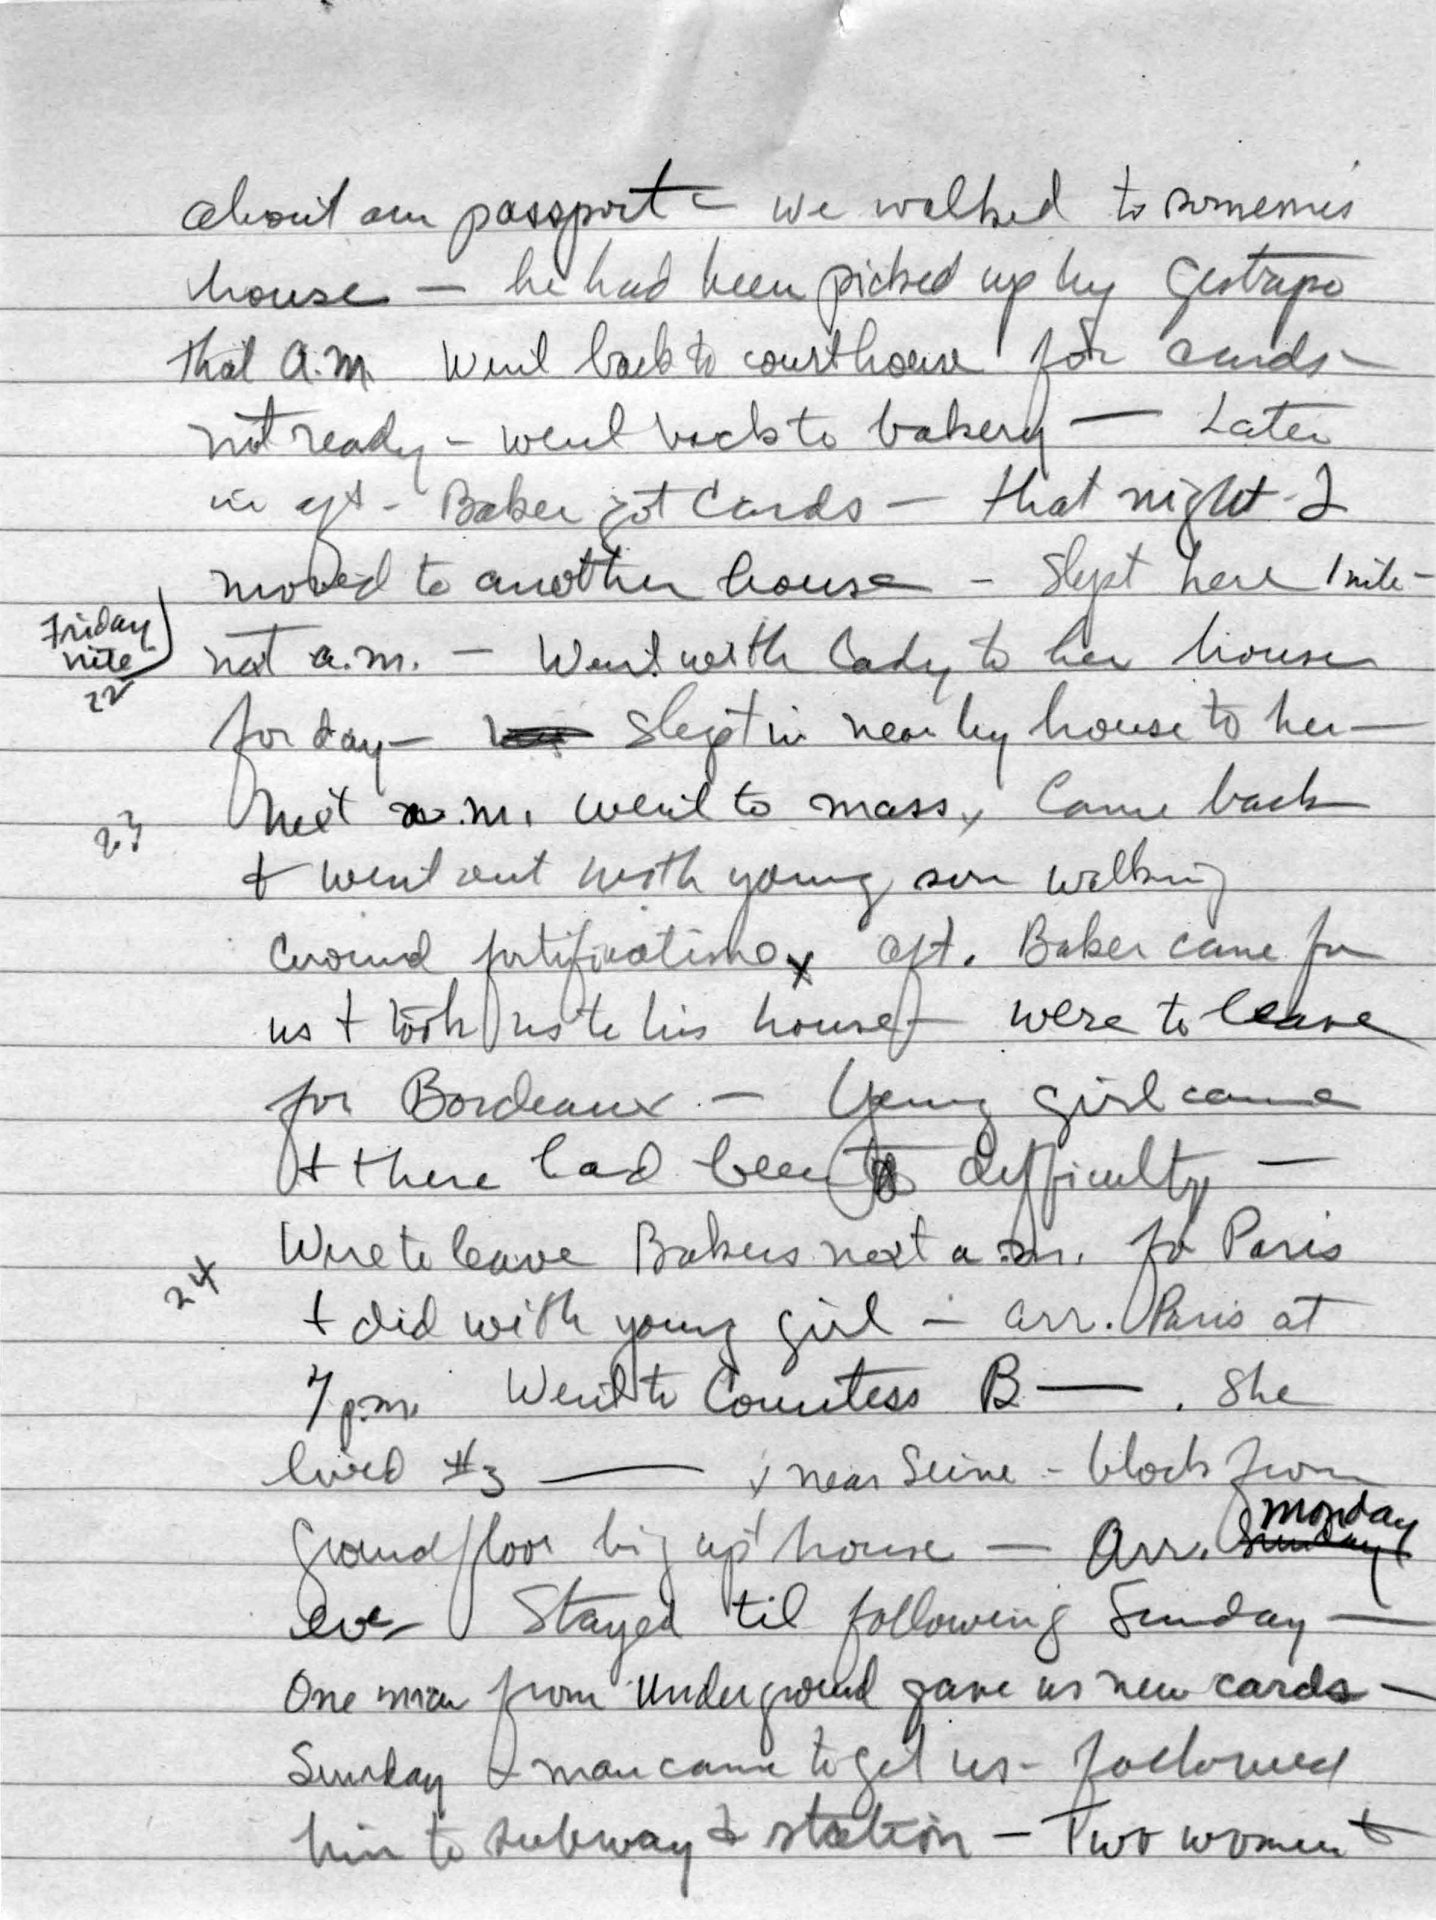 about our passport – we walked to someones
house – he had been picked up by Gestapo
that a.m. Went back to courthouse for cards –
not ready – went back to bakery – Later
in aft – Baker got cards – that night I
moved to another house – Slept here 1 nite –
Friday
nite
22
nxt a.m. – Went with Lady to her house
for day – Slept in near by house to her –
23
Next a.m. went to mass, Came back
+ went out with young son walking
around fortifications aft. Baker came for
us + took us to his house – were to leave
for Bordeaux – Young girl came
+ there had been difficulty –
24
Were to leave Bakers next a.m. for Paris
+ did with young girl – arr. Paris at
7 p.m. Went to Countess B — . She
lived #3 — near Seine – block from
Ground floor big house – Arr. Sunday
Monday
eve – Stayed til following Sunday –
One man from Underground gave us new cards –
Sunday + man came to get us – followed
him to subway & station – Two women +